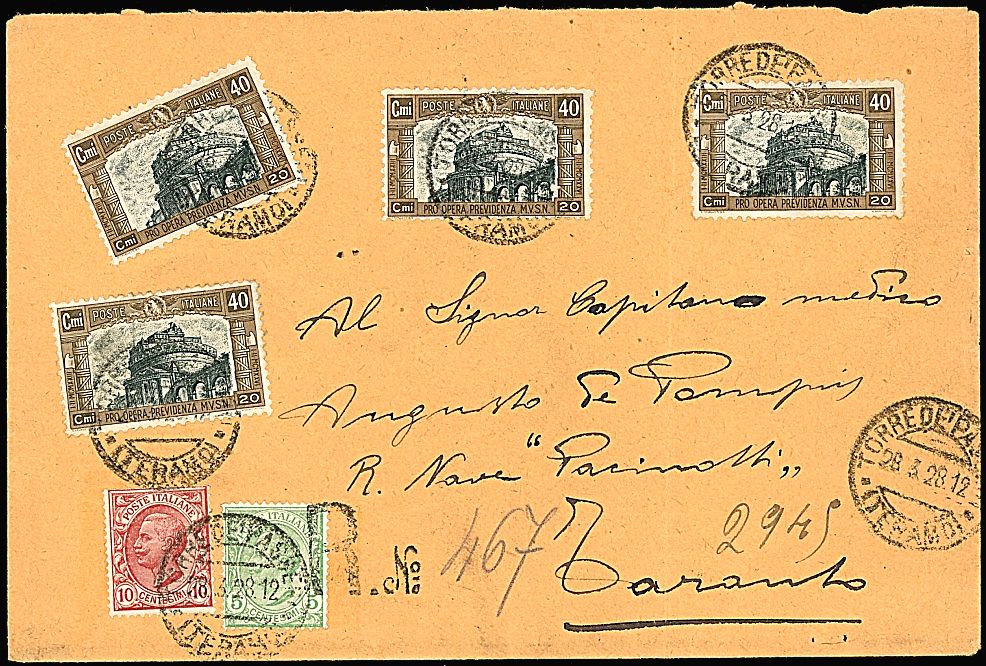 Cmi POSTE ITALIANE 40
PRO OPERA PREVIDENZA M.V.S.N.
Cmi 20
Cmi POSTE ITALIANE 40
PRO OPERA PREVIDENZA M.V.S.N.
Cmi 20
Cmi POSTE ITALIANE 40
PRO OPERA PREVIDENZA M.V.S.N.
Cmi 20
Cmi POSTE ITALIANE 40
PRO OPERA PREVIDENZA M.V.S.N.
Cmi 20
Al Signor Capitano medico
Augusto De Pompeis
R. Nave "Pacinotti"
Taranto
2945
R. No
467
POSTE ITALIANE
10 CENTESIMI 10
5 CENTESIMI 5
28.3.28.12
(TERAMO)
28.3.28.12
(TERAMO)